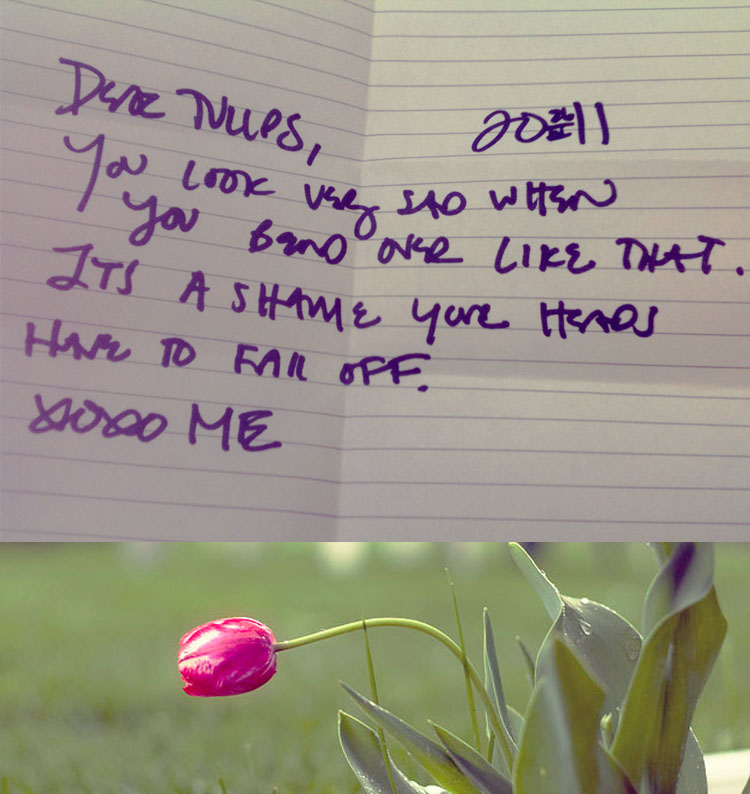 DEAR TULIPS,
20 26/III 11
YOU LOOK VERY SAD WHEN
YOU BEND OVER LIKE THAT.
ITS A SHAME YOUR HEADS
HAVE TO FALL OFF.
XOXO ME